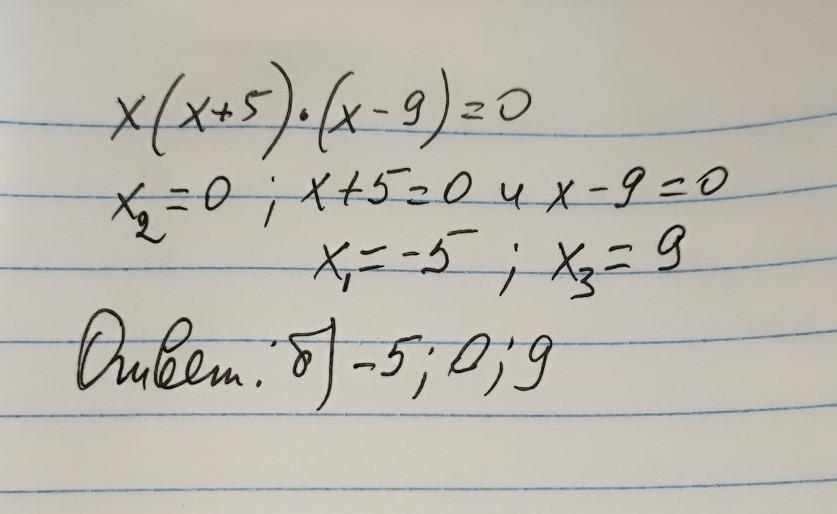 x(x+5)·(x-9)=0
x₂=0; x+5=0 и x-9=0
x₁=-5; x₃=9
Ответ: б) -5; 0; 9